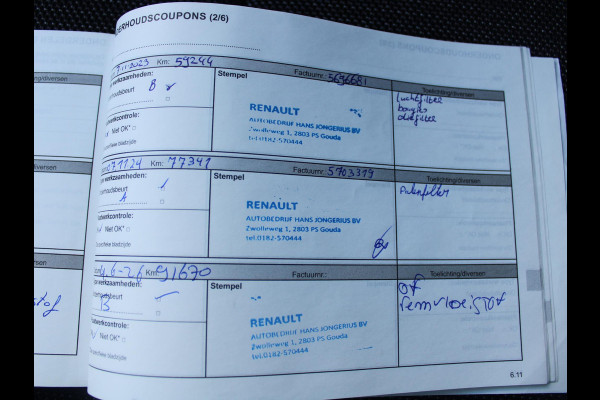 ERHOUDSCOUPONS (2/6)
11-2023 Km: 59244
werkzaamheden:
houdsbeurt B
werkcontrole:
Niet OK*
Stempel
Factuurnr.: 5696681
RENAULT
AUTOBEDRIJF HANS JONGERIUS BV
Zwolleweg 1, 2803 PS Gouda
tel.0182-570444
Toelichting/diversen
Luchtfilter
bougies
oliefilter
071124 Km: 77341
werkzaamheden:
erhoudsbeurt
A
Niet OK*
specifieke bladzijde
Stempel
Factuurnr.: 5703319
RENAULT
AUTOBEDRIJF HANS JONGERIUS BV
Zwolleweg 1, 2803 PS Gouda
tel.0182-570444
Toelichting/diversen
4.6-26 Km: 91670
werkzaamheden:
erhoudsbeurt
B
werkcontrole:
Niet OK*
specifieke bladzijde
Stempel
Factuurnr.:
RENAULT
AUTOBEDRIJF HANS JONGERIUS BV
Zwolleweg 1, 2803 PS Gouda
tel.0182-570444
Toelichting/diversen
of
remvloeistof
ting/diversen
ting/diversen
ting/diversen
stof
6.11